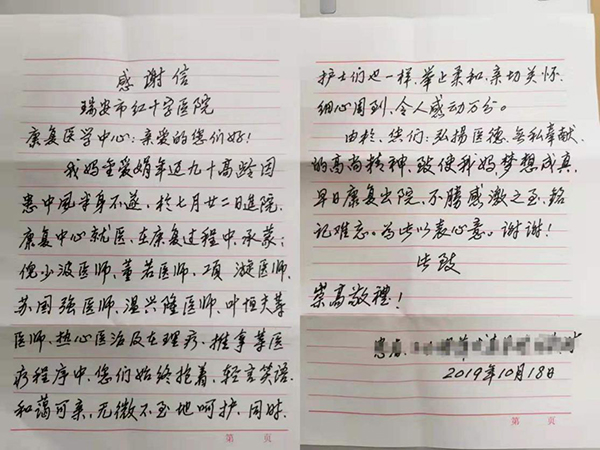 感谢信
瑞安市红十字医院
康复医学中心:亲爱的您们好!
我妈金爱娟年近九十高龄因
患中風半身不遂,於七月廿二日進院
康复中心就医,在康复过程中,承蒙:
倪少波医师、董若医师、项 漩医师、
苏国强医师、温兴隆医师、叶恒夫等
医师、热心医治及在理疗、推拿等医
疗程序中,您们始终抱着,轻言笑语
和蔼可亲,无微不至地呵护,同时,
第 页
护士们也一样,举止柔和、亲切关怀、
细心周到,令人感动万分。
由於,您们:弘揚医德、无私奉献、
的高尚精神,致使我妈,梦想成真,
早日康复出院,不勝感激之至,銘
记难忘。为此以表心意。谢谢!
此致
崇高敬禮!
患者
2019年10月18日
第 页